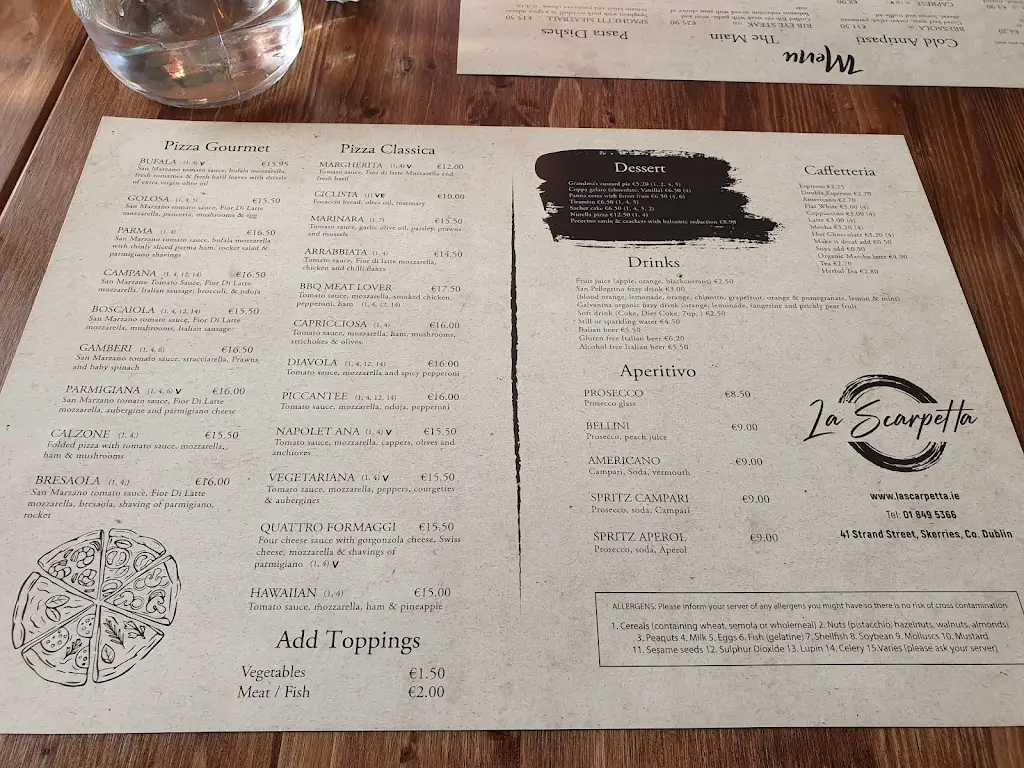 Menu
Cold Antipasti
The Main
Pasta Dishes
RIB EYE STEAK
SPAGHETTI MEATBALL
Pizza Gourmet
BUFALA (1, 4) V €15.95
San Marzano tomato sauce, bufala mozzarella,
fresh tomatoes & fresh basil leaves with drizzle
of extra virgin olive oil
GOLOSA (1, 4, 5) €15.50
San Marzano tomato sauce, Fior Di Latte
mozzarella, panceria, mushrooms & egg
PARMA (1, 4) €16.50
San Marzano tomato sauce, bufala mozzarella
with thinly sliced parma ham, rocket salad &
parmigiano shavings
CAMPANA (1, 4, 12, 14) €16.50
San Marzano Tomato Sauce, Fior Di Latte
mozzarella, Italian sausage, broccoli, & nduja
BOSCAIOLA (1, 4, 12, 14) €15.50
San Marzano tomato sauce, Fior Di Latte
mozzarella, mushrooms, Italian sausage
GAMBERI (1, 4, 6) €16.50
San Marzano tomato sauce, stracciatella, Prawns
and baby spinach
PARMIGIANA (1, 4, 6) V €16.00
San Marzano tomato sauce, Fior Di Latte
mozzarella, aubergine and parmigiano cheese
CALZONE (1, 4;) €15.50
Folded pizza with tomato sauce, mozzarella,
ham & mushrooms
BRESAOLA (1, 4;) €16.00
San Marzano tomato sauce, Fior Di Latte
mozzarella, bresaola, shaving of parmigiano,
rocket
Pizza Classica
MARGHERITA (1, 4) V €12.00
Tomato sauce, Fior di latte Mozzarella and
fresh basil
CICLISTA (1) VE €10.00
Focaccia bread, olive oil, rosemary
MARINARA (1, 7) €15.50
Tomato sauce, garlic olive oil, parsley, prawns
and mussels
ARRABBIATA (1, 4) €14.50
Tomato sauce, Fior di latte mozzarella,
chicken and chilli flakes
BBQ MEAT LOVER €17.50
Tomato sauce, mozzarella, smoked chicken,
pepperoni, ham (1, 4, 12, 14)
CAPRICCIOSA (1, 4) €16.00
Tomato sauce, mozzarella, ham, mushrooms,
artichokes & olives
DIAVOLA (1, 4, 12, 14) €16.00
Tomato sauce, mozzarella and spicy pepperoni
PICCANTEE (1, 4, 12, 14) €16.00
Tomato sauce, mozzarella, nduja, pepperoni
NAPOLET ANA (1, 4) V €15.50
Tomato sauce, mozzarella, cappers, olives and
anchioves
VEGETARIANA (1, 4) V €15.50
Tomato sauce, mozzarella, peppers, courgettes
& aubergines
QUATTRO FORMAGGI €15.50
Four cheese sauce with gorgonzola cheese, Swiss
cheese, mozzarella & shavings of
parmigiano (1, 4) V
HAWAIIAN (1, 4) €15.00
Tomato sauce, mozzarella, ham & pineapple
Add Toppings
Vegetables €1.50
Meat / Fish €2.00
Dessert
Grandma's custard pie €5.20 (1, 2, 4, 5)
Coppa gelato (chocolate, Vanilla) €6.50 (4)
Panna cotta with forest fruit €6.50 (4, 6)
Tiramisu €6.50 (1, 4, 5)
Sacher cake €6.50 (1, 4, 5, 2)
Nutella pizza €12.50 (1, 4)
Pecorino sardo & crackers with balsamic reduction €8.90
Drinks
Fruit juice (apple, orange, blackcurrant) €2.50
San Pellegrino fizzy drink €3.00
(blood orange, lemonade, orange, chinotto, grapefruit, orange & pomegranate, lemon & mint)
Galvanina organic fizzy drink (orange, lemonade, tangerine and prickly pear fruit)
Soft drink (Coke, Diet Coke, 7up, ) €2.50
Still or sparkling water €4.50
Italian beer €5.50
Gluten free Italian beer €6.20
Alcohol free Italian beer €5.50
Aperitivo
PROSECCO €8.50
Prosecco glass
BELLINI €9.00
Prosecco, peach juice
AMERICANO €9.00
Campari, Soda, vermouth
SPRITZ CAMPARI €9.00
Prosecco, soda, Campari
SPRITZ APEROL €9.00
Prosecco, soda, Aperol
Caffetteria
Espresso €2.25
Double Espresso €2.70
Americano €2.70
Flat White €3.00 (4)
Cappuccino €3.00 (4)
Latte €3.00 (4)
Mocha €3.20 (4)
Hot Chocolate €3.20 (4)
Make it decaf add €0.50
Soya add €0.50
Organic Matcha latte €4.90
Tea €2.70
Herbal Tea €2.80
La Scarpetta
www.lascarpetta.ie
Tel: 01 849 5366
41 Strand Street, Skerries, Co. Dublin
ALLERGENS: Please inform your server of any allergens you might have so there is no risk of cross contamination
1. Cereals (containing wheat, semola or wholemeal) 2. Nuts (pistacchio, hazelnuts, walnuts, almonds)
3. Peaquts 4. Milk 5. Eggs 6. Fish (gelatine) 7. Shellfish 8. Soybean 9. Molluscs 10. Mustard
11. Sesame seeds 12. Sulphur Dioxide 13. Lupin 14. Celery 15.Varies (please ask your server)